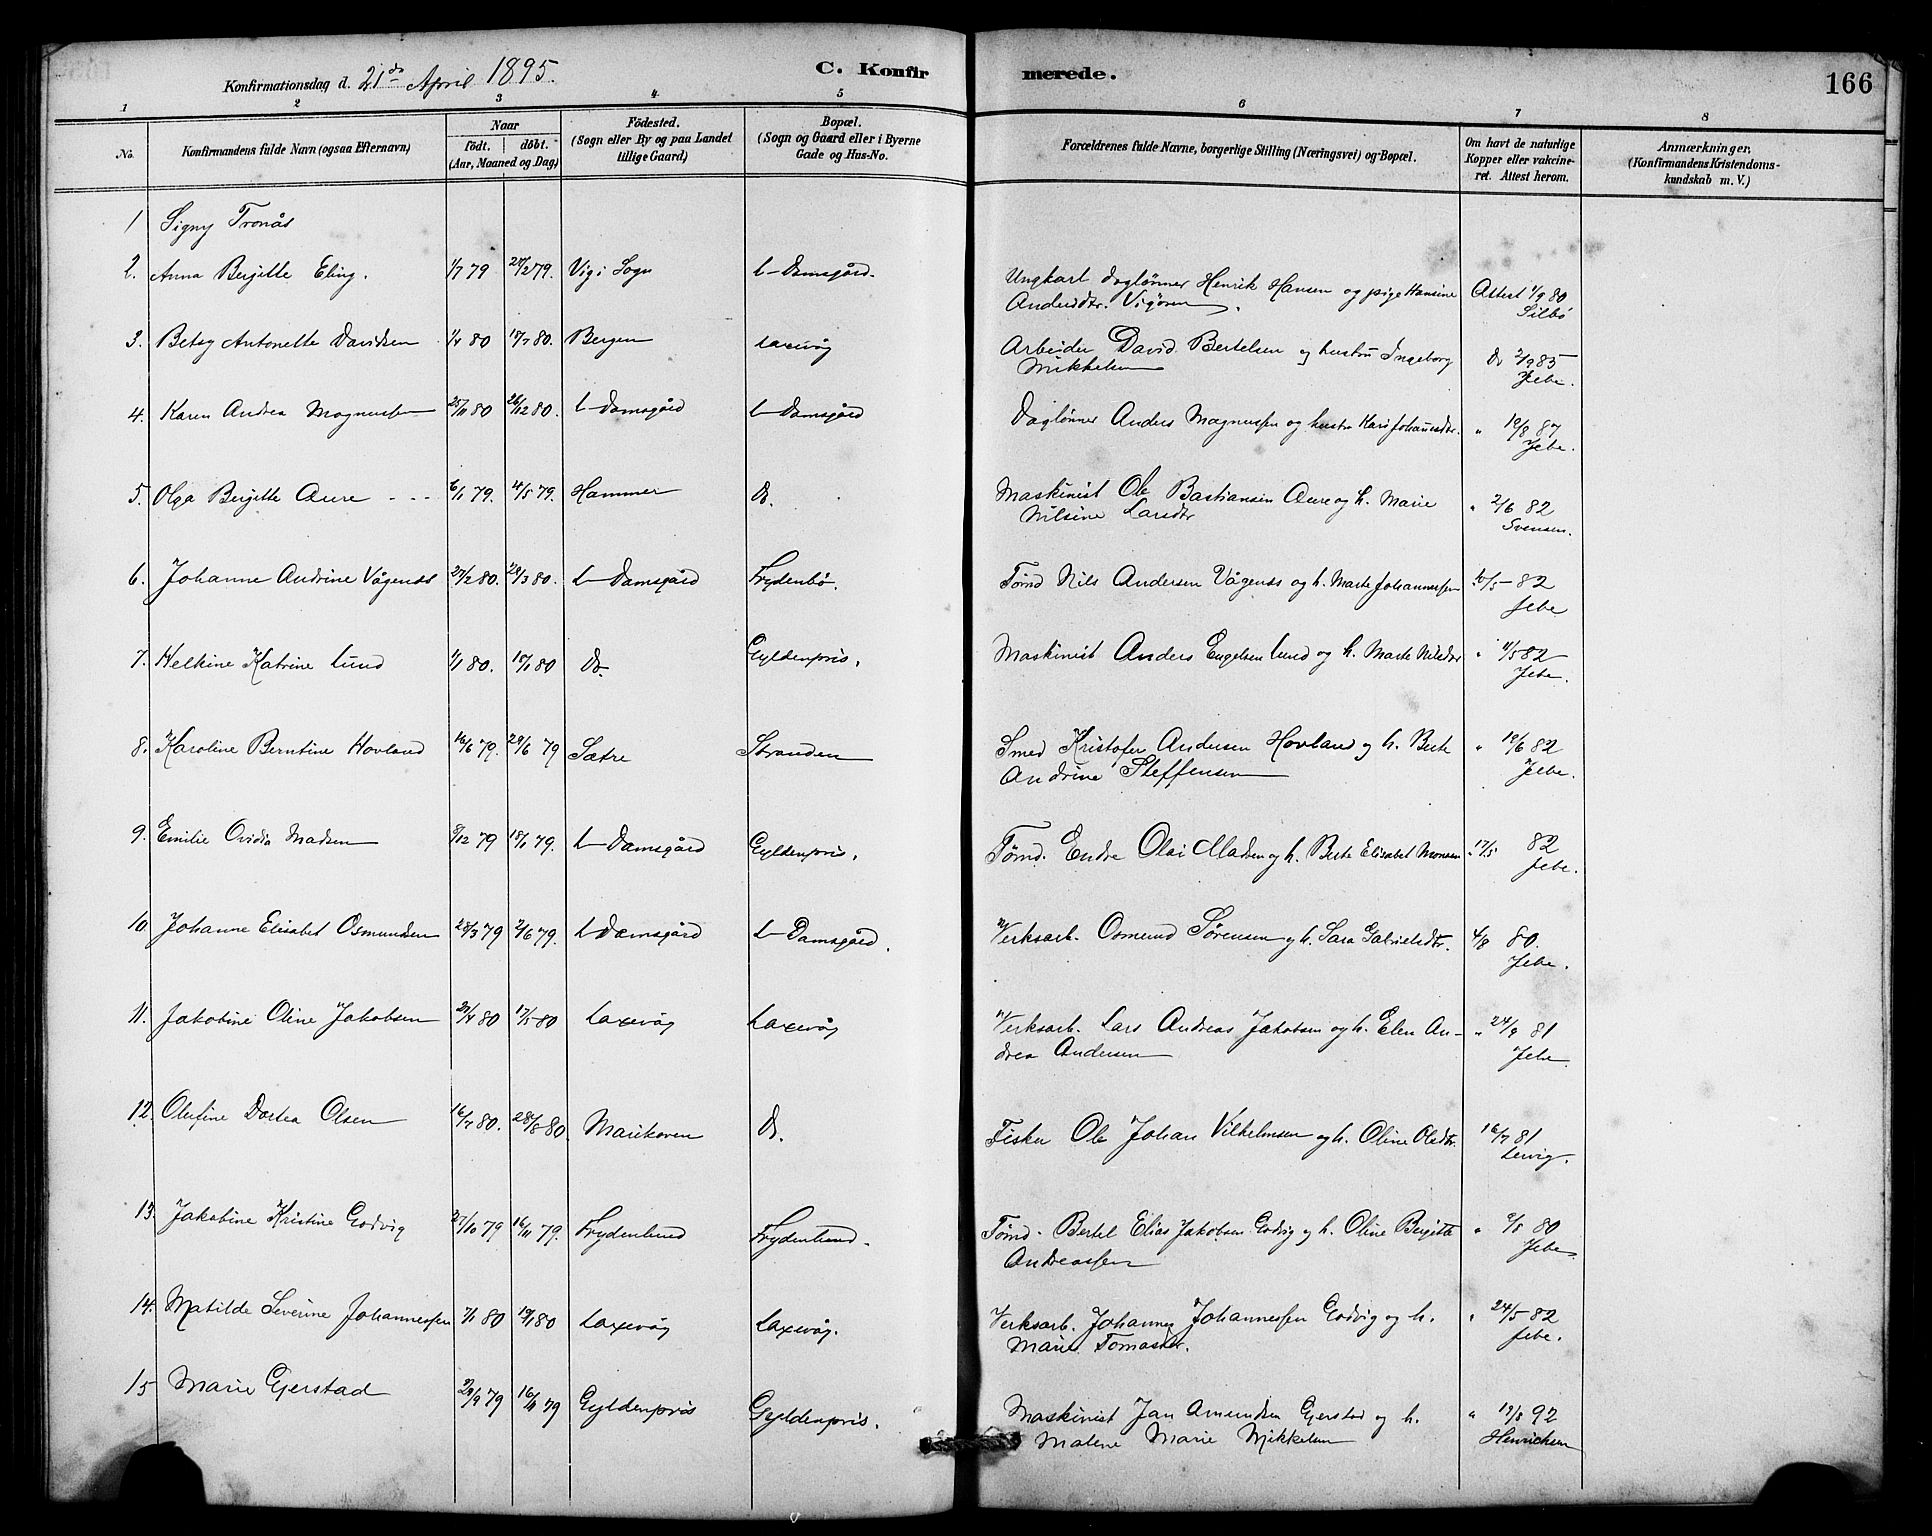 Konfirmationsdag d. 21de April 1895.
C. Konfirmerede.
166
1 2 3 4 5 6 7 8
No.
Konfirmandens fulde Navn (ogsaa Efternavn)
Naar
födt. döbt.
(Aar, Maaned og Dag)
Födested.
(Sogn eller By og paa Landet
tillige Gaard)
Bopæl.
(Sogn og Gaard eller i Byerne
Gade og Hus-No.
Forældrenes fulde Navne, borgerlige Stilling (Næringsvei) og Bopæl.
Om havt de naturlige
Kopper eller vakcine-
ret. Attest herom.
Anmærkninger.
(Konfirmandens Kristendoms-
kundskab m. V.)
1 Signy Tronås
2. Anna Bergitte Eling. 1/7 79 Vig i Sogn L-Damsgård.
Ungkarl daglønner Henrik Hansen og pige Hansine Attest 1/9 80
Andersdtr. Vigören. Silbö
3. Betsy Antonette Davidsen 1/4 80 18/7 80. Bergen Laxevåg
Arbeider David Bertelsen og hustru Ingeborg Do 2/9 85
Mikkelsen Jebe.
4. Karen Andrea Magnussen 25/11 80 26/12 80. L-Damsgård L-Damsgård
Daglønner Anders Magnussen og hustru Kari Johannesdtr. " 19/8 87
Jebe.
5. Olga Bergitte Aure - - - 6/1 79. 4/5 79. Hammer Do.
Maskinist Ole Bastiansen Aure og h. Marie " 2/6 82
Nilsine Larsdtr Svensen.
6. Johanne Andrine Vågenes 27/2 80. 29/3 80. L-Damsgård Frydenbö.
Tømd Nils Andersen Vågenes og h. Marte Johannessen 10/5 82
Jebe
7. Helkine Katrine Lund 1/1 80. 18/1 80 Do. Gyldenpris.
Maskinist Anders Engelsen Lund og h. Marte Nilsdtr " 11/5 82
Jebe.
8. Karoline Berntine Hovland 16/6 79. 29/6 79 Sætre Stranden
Smed Kristofer Andersen Hovland og h. Berte " 19/6 82
Andrine Steffensen Jebe.
9. Emilie Ovidia Madsen 8/12 79 18/1 79. L-Damsgård Gyldenpris.
Tømd. Endre Olai Madsen og h. Berte Elisabet Monsen " 17/5 82
Jebe.
10. Johanne Elisabet Osmundsen 28/3 79 2/6 79. L-Damsgård L-Damsgård.
Verksarb. Osmund Sörensen og h. Sara Gabrielsdtr. 4/8 80.
Jebe.
11. Jakobine Oline Jakobsen 20/4 80 17/5 80 Laxevåg Laxevåg
Verksarb. Lars Andreas Jakobsen og h. Elen An- " 24/9 81
drea Andersen Jebe
12. Olufine Dortea Olsen 16/7 80. 28/8 80. Marikoven Do.
Fisker Ole Johan Vilhelmsen og h. Oline Olsdtr. 16/7 81
Lervig.
13. Jakobine Kristine Godvig 27/10 79 16/11 79. Frydenlund Frydenlund.
Tømd. Bertel Elias Jakobsen Godvig og h. Oline Bergitte " 9/8 80
Andreassen Jebe
14. Matilde Severine Johannessen 7/1 80 19/1 80 Laxevåg Laxevåg.
Verksarb. Johannes Johannessen Godvig og h. " 24/5 82
Marie Tomasdtr. Jebe.
15 Marie Gjerstad 29/9 79 16/11 79 Gyldenpris Gyldenpris.
Maskinist Jan Amundsen Gjerstad og h. " 19/8 92
Malene Marie Mikkelsen Henrichsen